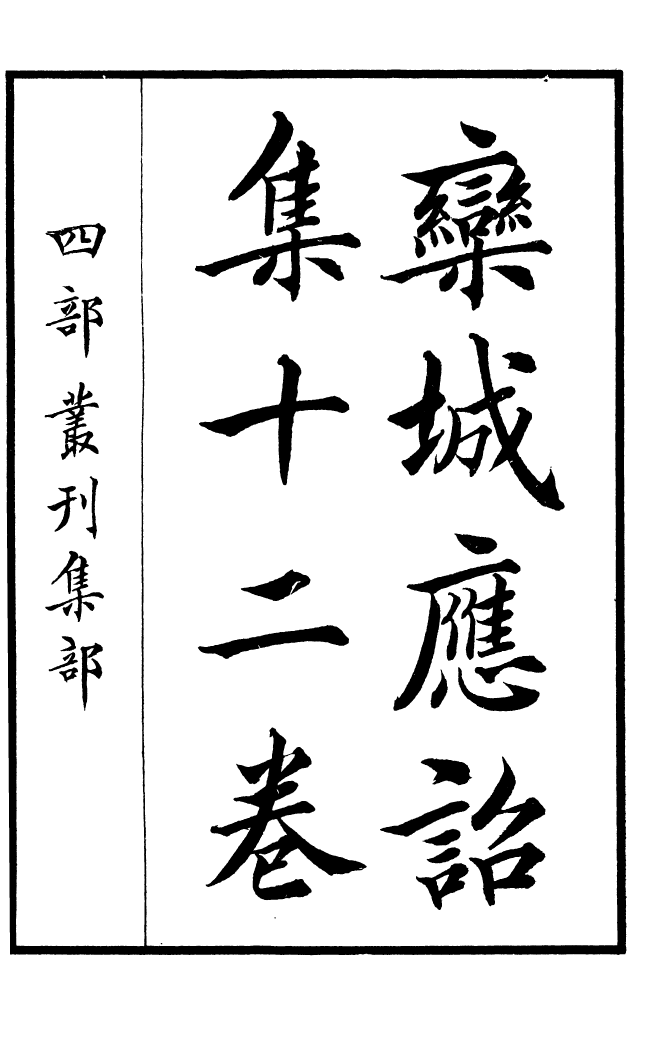 欒城應詔
集十二卷
四部叢刊集部